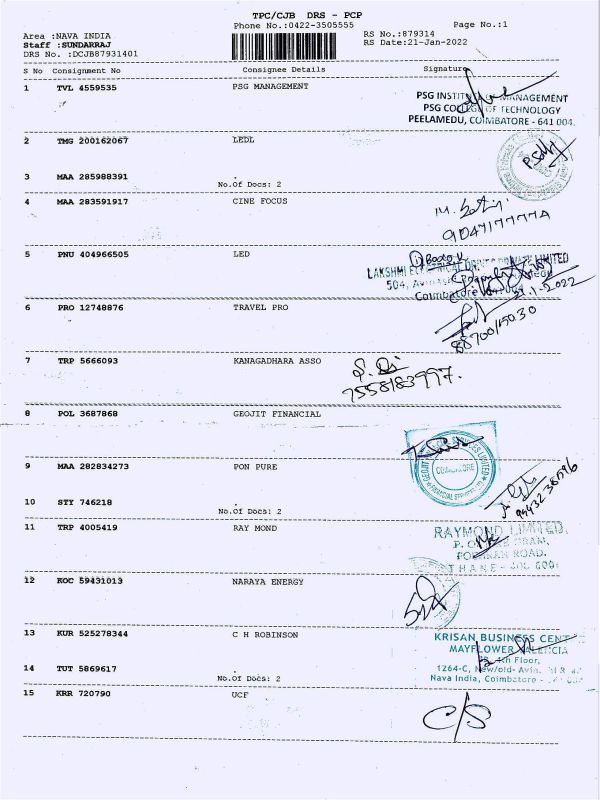 TPC/CJB DRS - PCP
Phone No.:0422-3505555
Page No.:1
Area :NAVA INDIA
RS No.:879314
Staff :SUNDARRAJ
RS Date:21-Jan-2022
DRS No. :DCJB87931401
S No Consignment No Consignee Details Signature
1 TVL 4559535 PSG MANAGEMENT
PSG INSTITUTE OF MANAGEMENT
PSG COLLEGE OF TECHNOLOGY
PEELAMEDU, COIMBATORE - 641 004.
2 TMG 200162067 LEDL
3 MAA 285988391 .
No.Of Docs: 2
4 MAA 283591917 CINE FOCUS
9047177777
5 PNU 404966505 LED
LAKSHMI PRIVATE LIMITED
504,
Coimbatore
6 PRO 12748876 TRAVEL PRO
7 TRP 5666093 KANAGADHARA ASSO
7558183997.
8 POL 3687868 GEOJIT FINANCIAL
GEOJIT FINANCIAL SERVICES LIMITED
COIMBATORE
9 MAA 282834273 PON PURE
10 STY 746218 .
No.Of Docs: 2
11 TRP 4005419 RAY MOND
RAYMOND LIMITED.
ROAD,
THANE - 400 600
12 KOC 59431013 NARAYA ENERGY
13 KUR 525278344 C H ROBINSON
KRISAN BUSINESS CENT
MAYFLOWER VALENCIA
4th Floor,
14 TUT 5869617 .
1264-C, New/old- Avin
No.Of Docs: 2
Nava India, Coimbatore -
15 KRR 720790 UCF
C/S